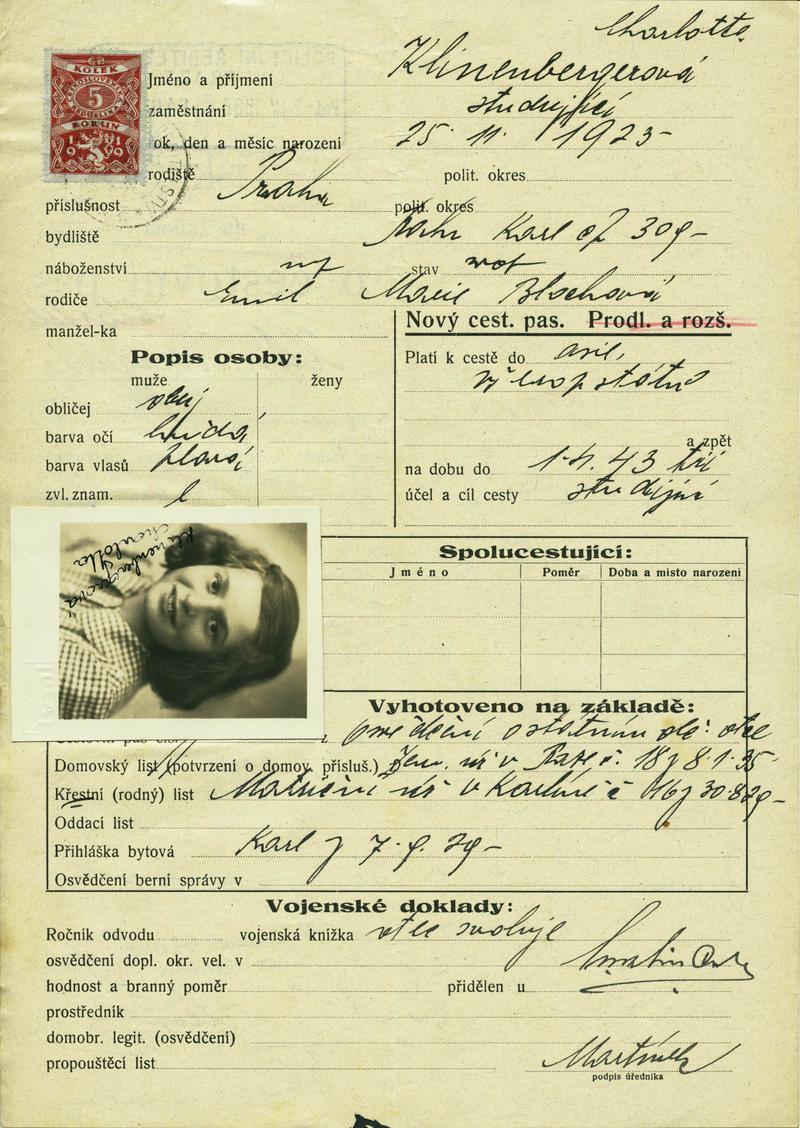 Charlotte
KOLEK
5
KORUN
1919
Jméno a příjmení Klinenbergerová
zaměstnání studující
rok, den a měsíc narození 25. 11. 1923
rodiště Praha polit. okres
příslušnost polit. okres
bydliště Karl čp 309
náboženství stav
rodiče Emil Marie Blochová
manžel-ka
Nový cest. pas. Prodl. a rozš.
Popis osoby:
muže ženy
obličej
barva očí hnědá
barva vlasů
zvl. znam.
Platí k cestě do
států
a zpět
na dobu do 1.4.43 tří
účel a cíl cesty studijní
Klinenbergerová
Charlotta
Spolucestující:
Jméno Poměr Doba a místo narození
Vyhotoveno na základě:
osvědčení o státním otce
Domovský list (potvrzení o domov. přísluš.) v č. 18 z 8.1.35
Křestní (rodný) list Matriční v Karlíně č 116 z 30.8.29
Oddací list
Přihláška bytová Karl z 7.9.29
Osvědčení berní správy v
Vojenské doklady:
Ročník odvodu vojenská knížka otec svoluje
osvědčení dopl. okr. vel. v
hodnost a branný poměr přidělen u
prostředník
domobr. legit. (osvědčení)
propouštěcí list Martínek
podpis úředníka